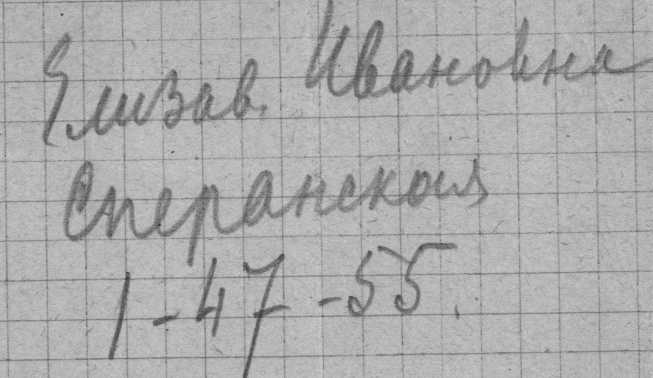 Елизав. Ивановна
Сперанская
1-47-55.